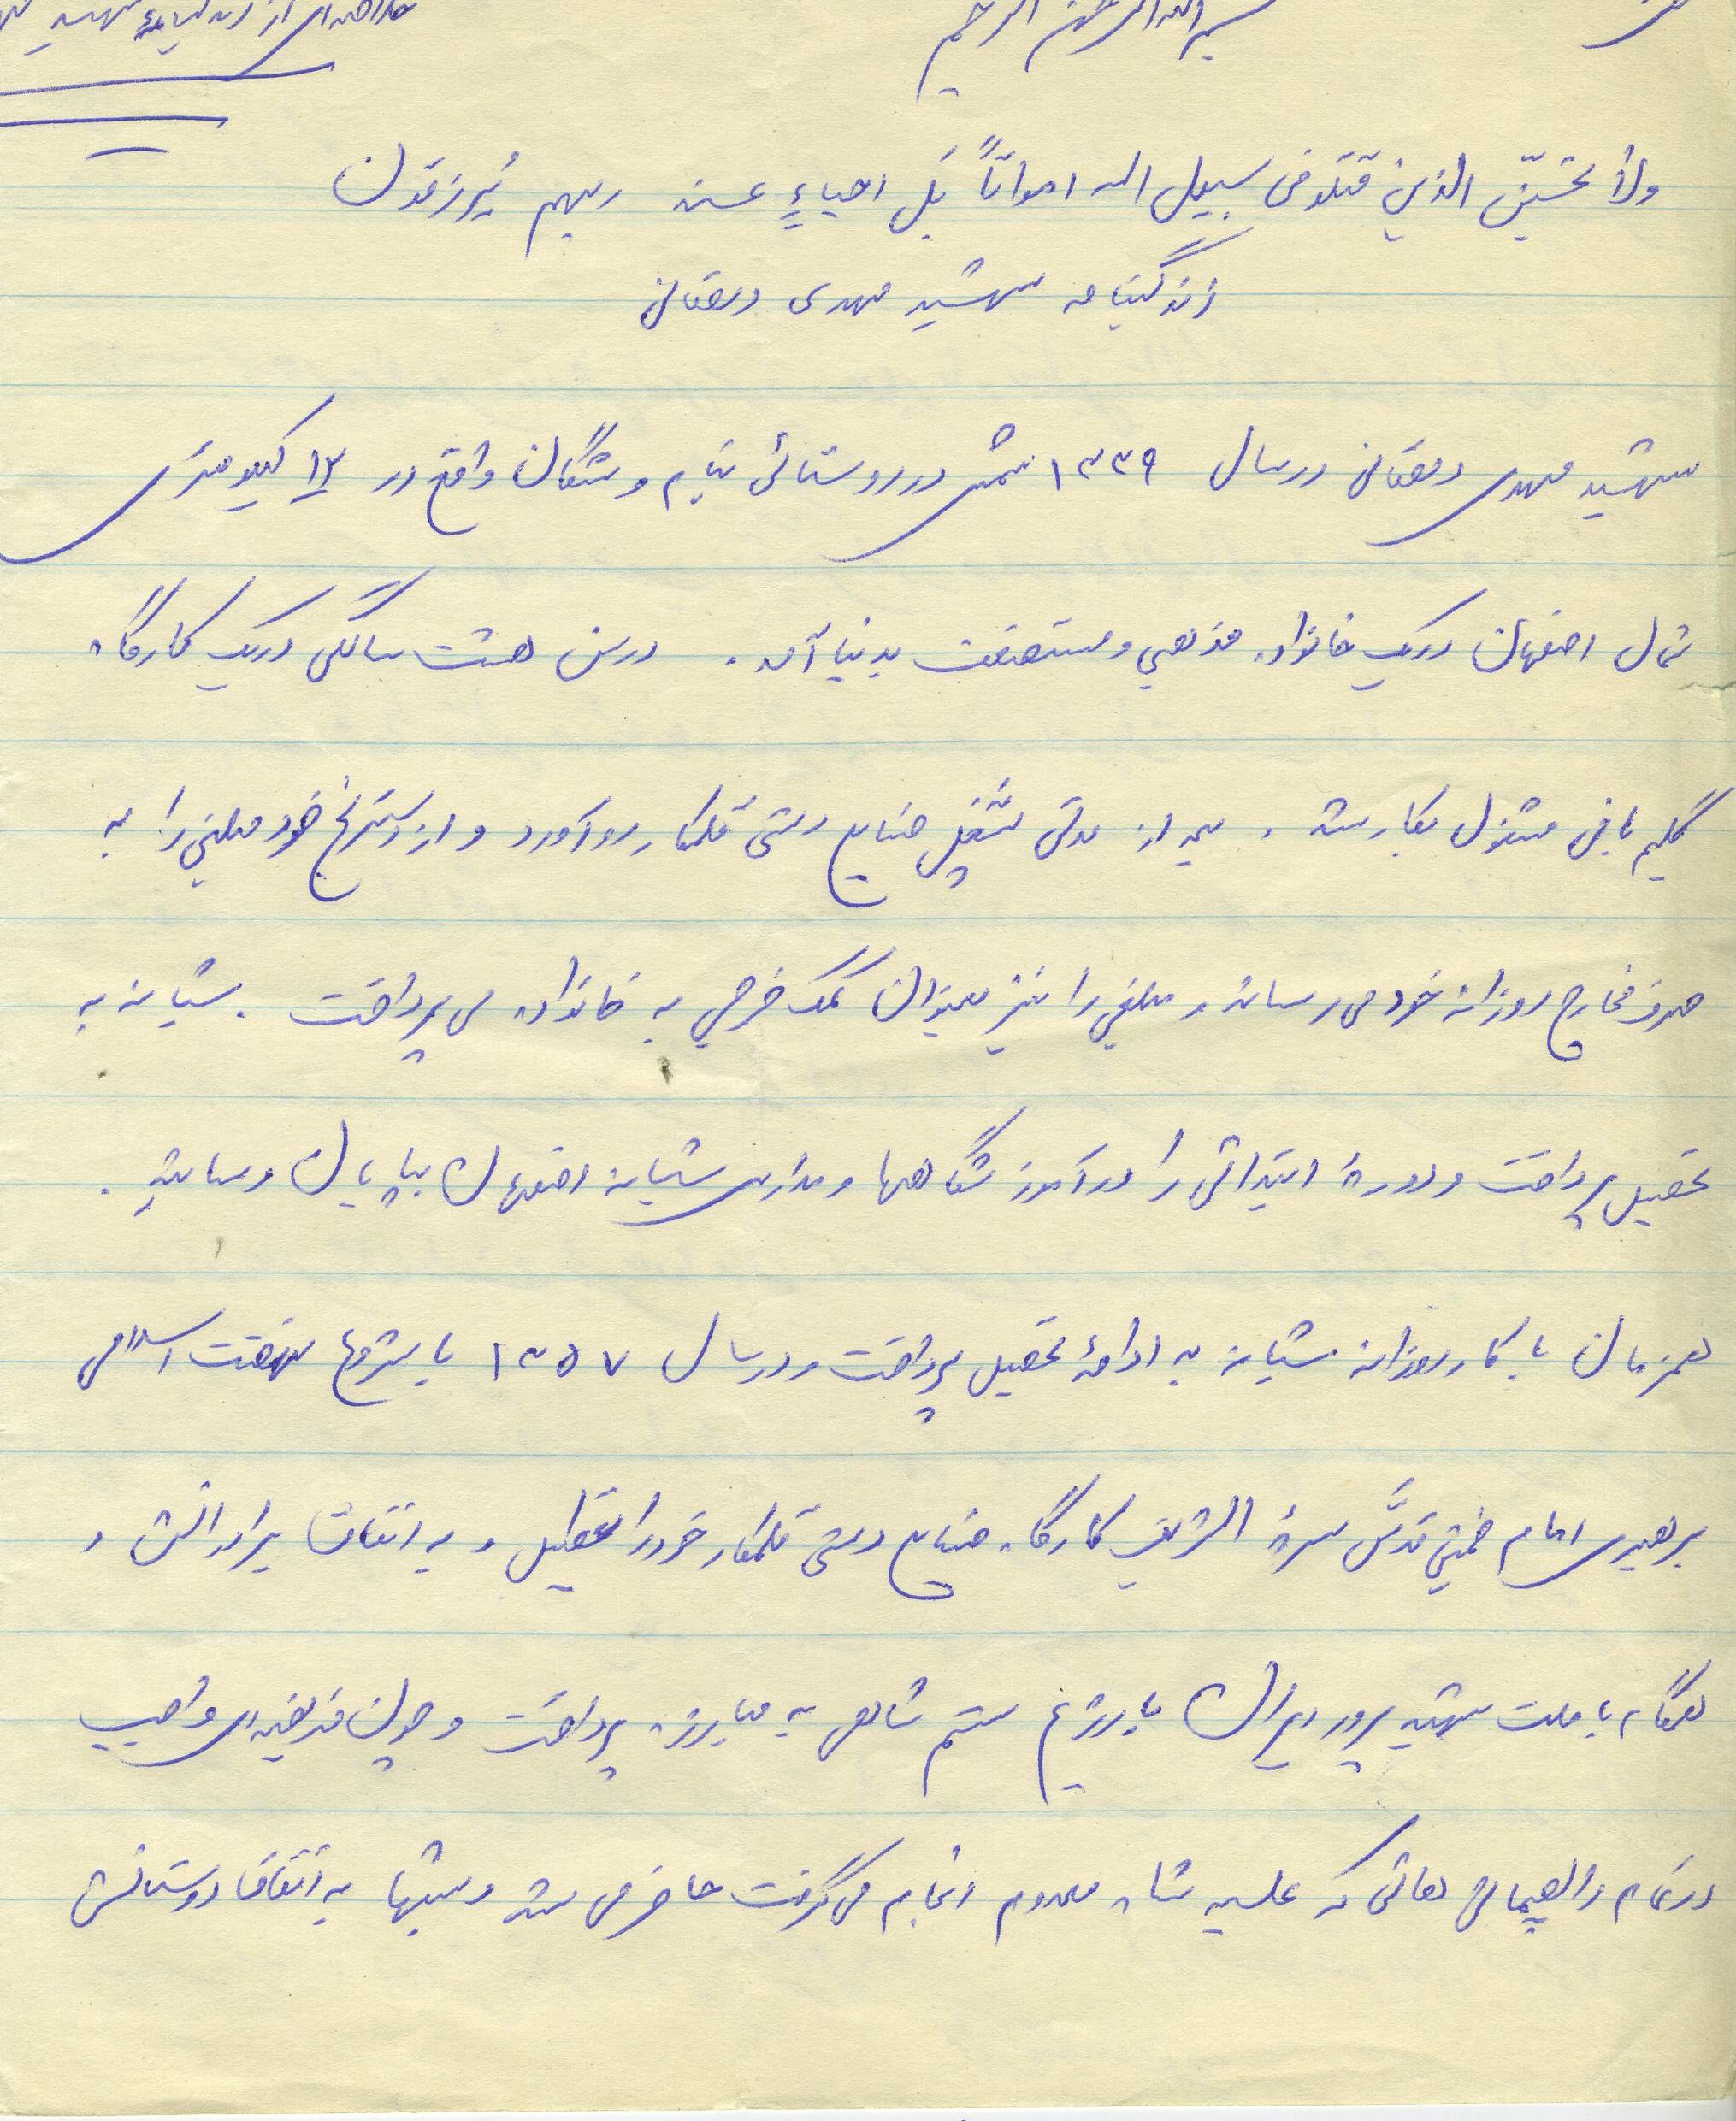 بسم الله الرحمن الرحیم
ولا تحسبنّ الذین قتلو فی سبیل الله امواتاً بَل احیاءٍ عند ربهم یُرزقون
زندگینامه شهید مهدی دهقانی
شهید مهدی دهقانی در سال ۱۳۳۹ شمسی در روستائی بنام دستگان واقع در ۱۲ کیلومتری
شمال اصفهان در یک خانواده مذهبی و مستضعف بدنیا آمد. در سن هشت سالگی در یک کارگاه
گلیم بافی مشغول بکار شد. بعد از مدتی بشغل صنایع دستی قلمکار روآورد و از دسترنج خود مبلغی را به
صرف مخارج روزانه خود می رساند و مبلغی را نیز بعنوان کمک خرجی به خانواده می پرداخت. شبانه به
تحصیل پرداخت و دورۀ ابتدائی را در آموزشگاهها و مدارس شبانه اصفهان بپایان رسانید.
همزمان با کار روزانه شبانه به ادامۀ تحصیل پرداخت و در سال ۱۳۵۷ با شروع نهضت اسلامی
برهبری امام خمینی قدسَّ سرۀ الشریف کارگاه صنایع دستی قلمکار خود را تعطیل و به اتفاق برادرانش و
همگام با ملت شهید پرور ایران با رژیم ستم شاهی به مبارزه پرداخت و چون فریضه ای واجب
در تمام راهپیمائی هائی که علیه شاه معدوم انجام می گرفت حاضر می شد و شبها به اتفاق دوستانش